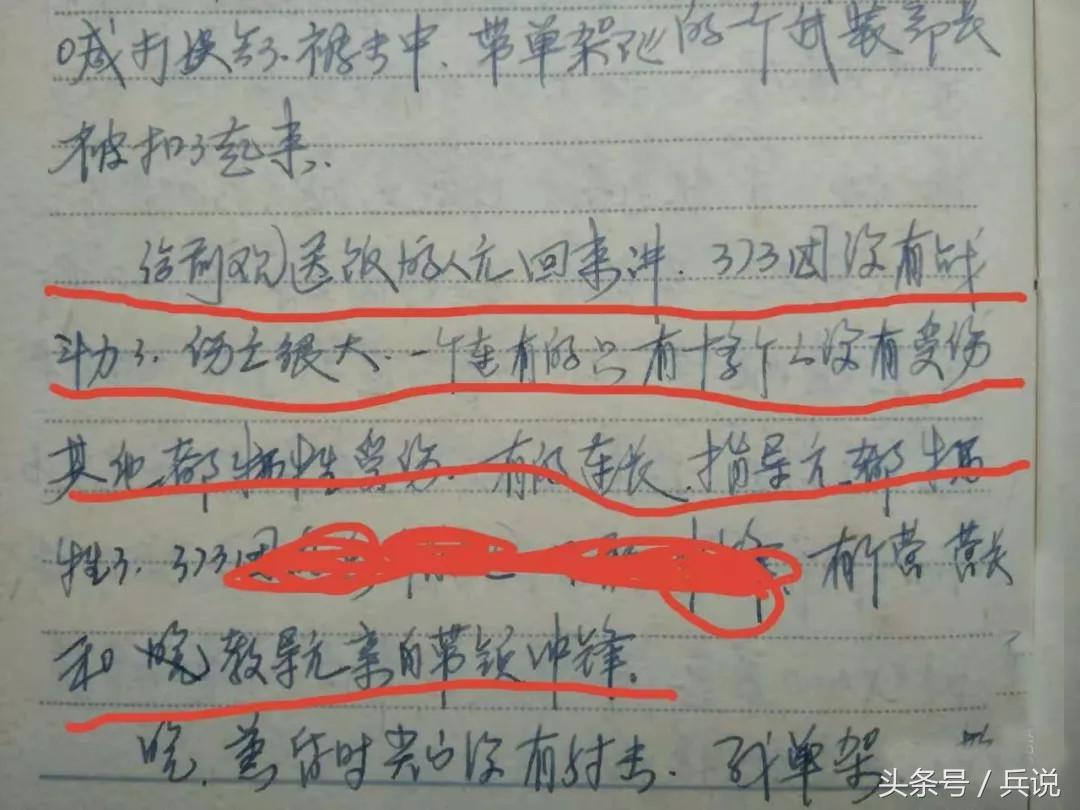 喊打没有了. 被击中. 带单架队的一个武装部长
被扣了起来.
给前观送饭的人先回来冲. 373团没有战
斗力了. 伤亡很大. 一个连有的只有十多个人没有受伤
其他都牺牲受伤. 有的连长. 指导员都牺
牲了. 373团 有个营 营长
和 教导员亲自带领冲锋.
晚. 黄昏时尖山没有射击. 我单架
头条号 / 兵说